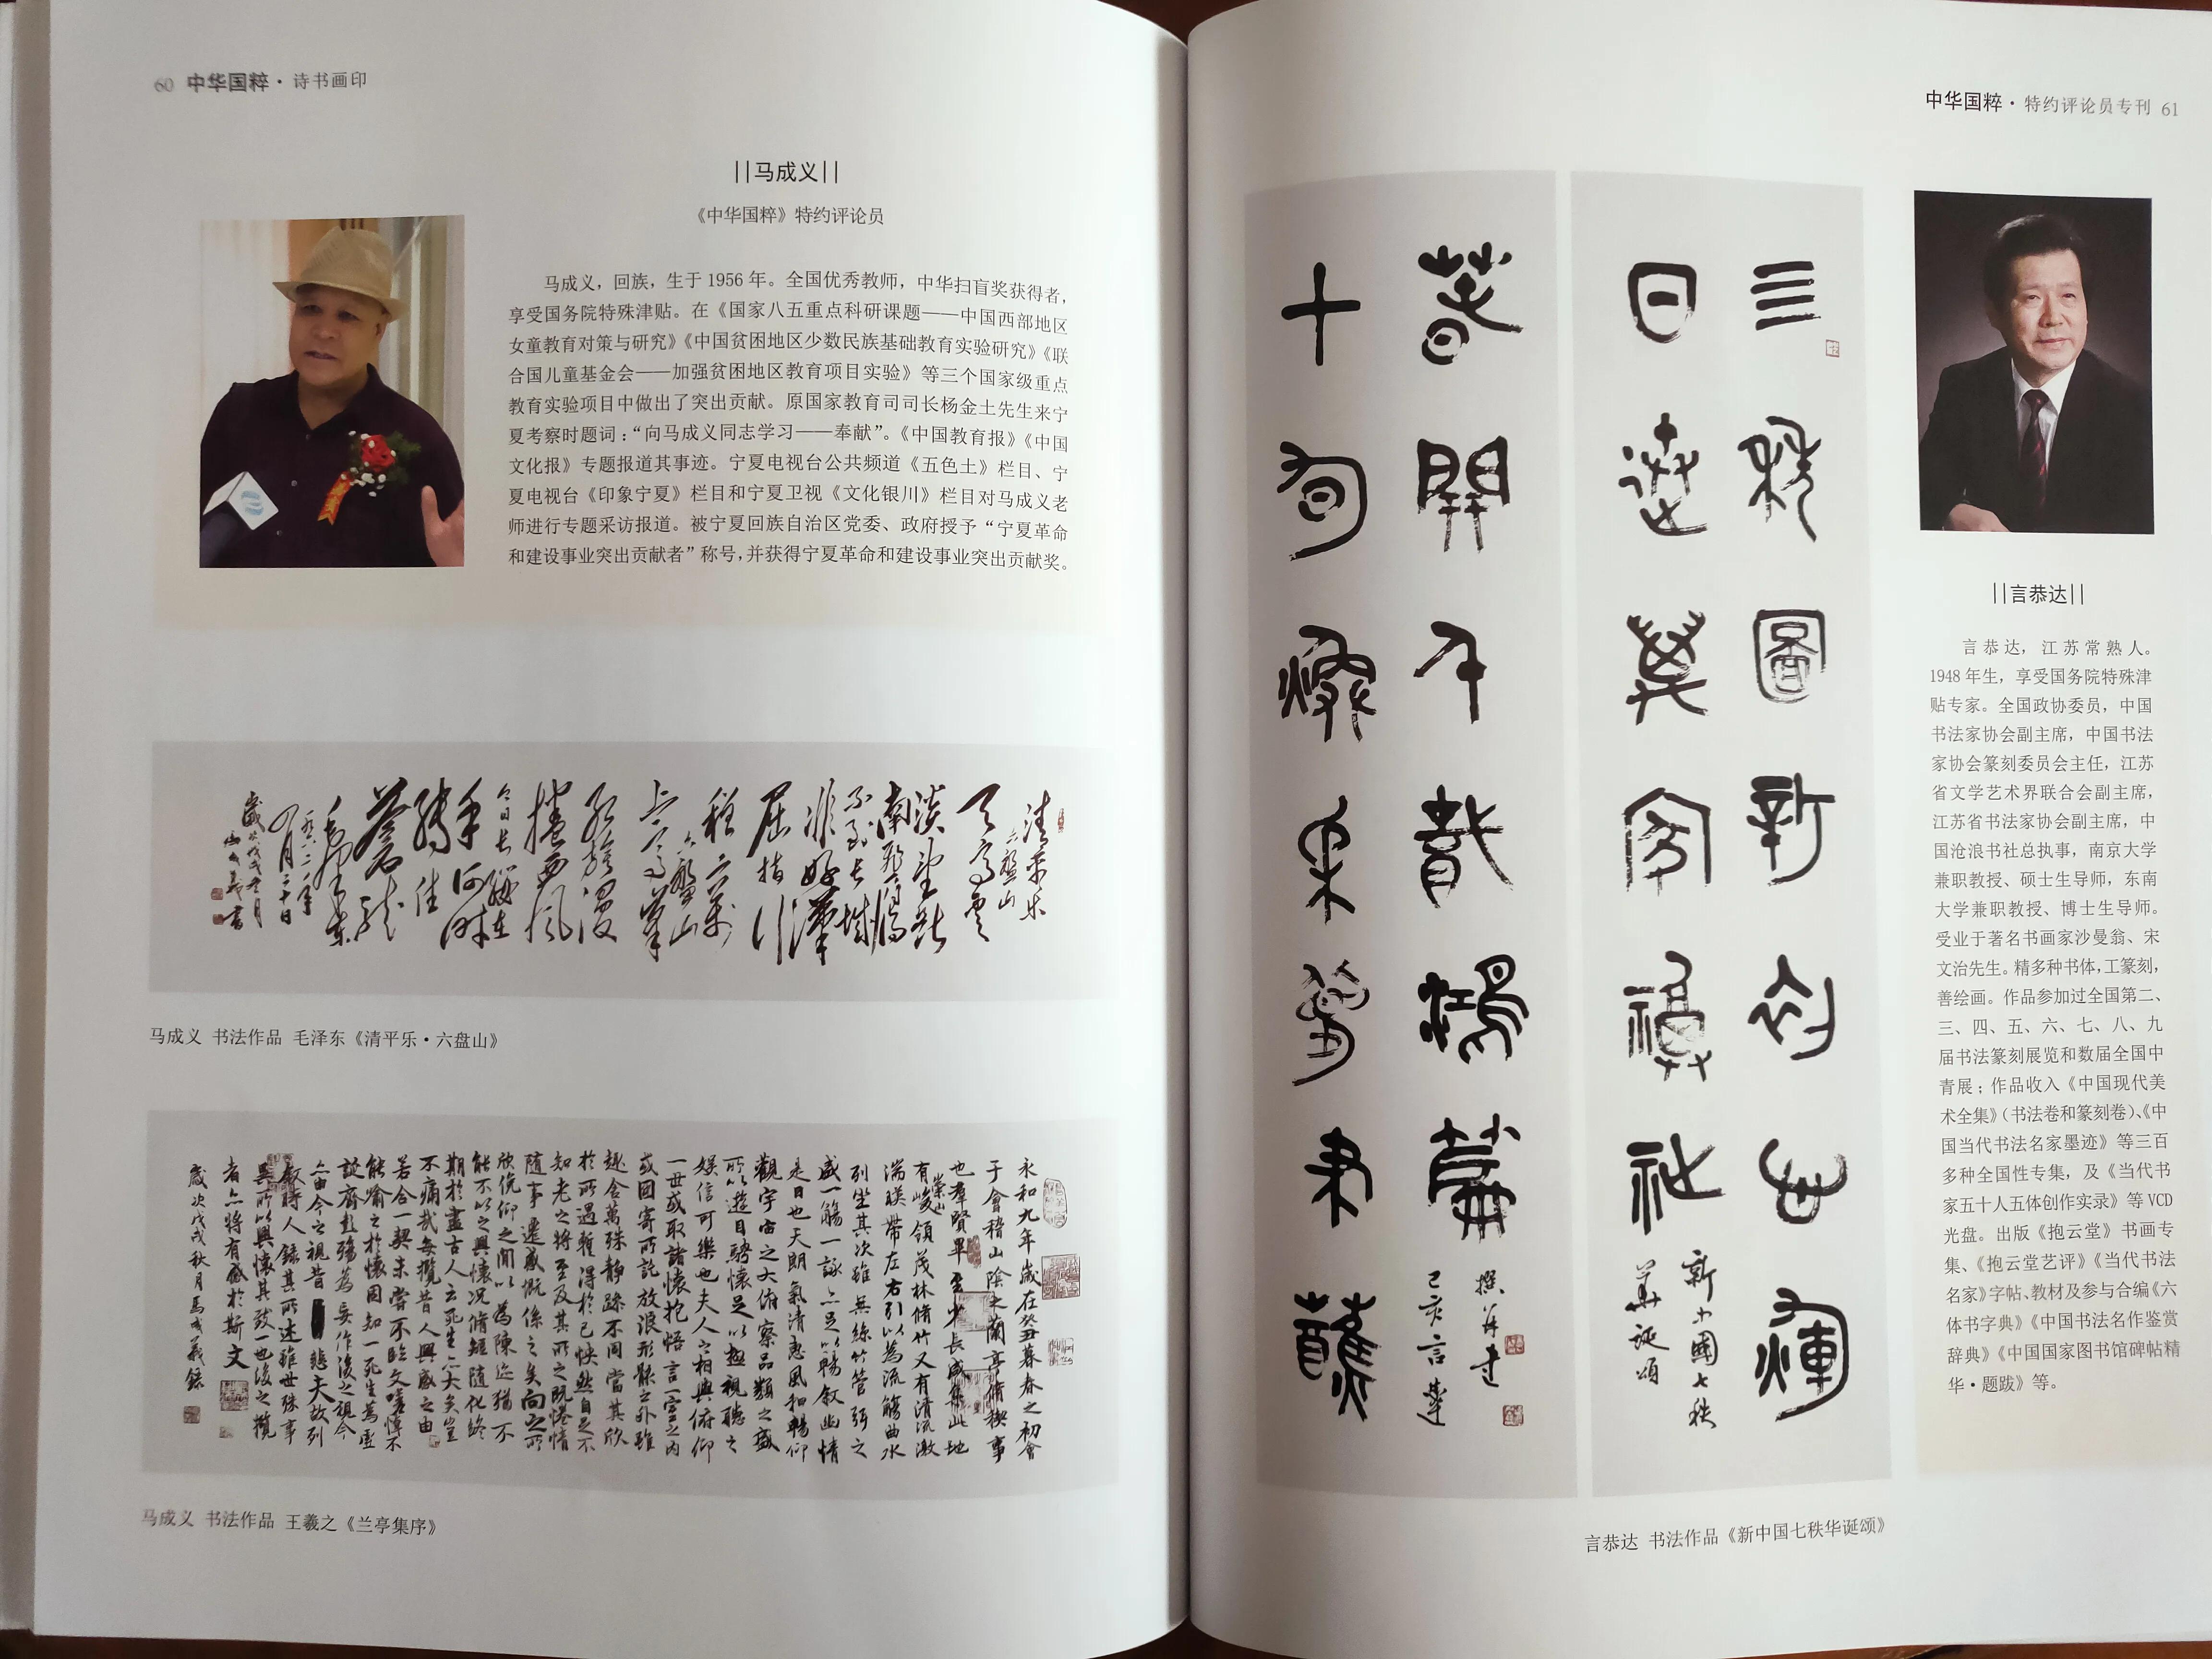 60 中华国粹·诗书画印
||马成义||
《中华国粹》特约评论员
马成义，回族，生于1956年。全国优秀教师，中华扫盲奖获得者，
享受国务院特殊津贴。在《国家八五重点科研课题——中国西部地区
女童教育对策与研究》《中国贫困地区少数民族基础教育实验研究》《联
合国儿童基金会——加强贫困地区教育项目实验》等三个国家级重点
教育实验项目中做出了突出贡献。原国家教育司司长杨金土先生来宁
夏考察时题词：“向马成义同志学习——奉献”。《中国教育报》《中国
文化报》专题报道其事迹。宁夏电视台公共频道《五色土》栏目、宁
夏电视台《印象宁夏》栏目和宁夏卫视《文化银川》栏目对马成义老
师进行专题采访报道。被宁夏回族自治区党委、政府授予“宁夏革命
和建设事业突出贡献者”称号，并获得宁夏革命和建设事业突出贡献奖。
清平乐
六盘山
天高云
淡望断
南飞雁
不到长城
非好汉
屈指行
程二万
六盘山
上高峰
红旗漫
卷西风
今日长缨在
手何时
缚住
苍龙
毛泽东
一九六二年
九月二十日
歲次戊戌冬月
馬成義書
马成义 书法作品 毛泽东《清平乐·六盘山》
永和九年歲在癸丑暮春之初會
于會稽山陰之蘭亭脩稧事
也羣賢畢至少長咸集此地
有崇山峻領茂林脩竹又有清流激
湍暎帶左右引以為流觴曲水
列坐其次雖無絲竹管弦之
盛一觴一詠亦足以暢敘幽情
是日也天朗氣清惠風和暢仰
觀宇宙之大俯察品類之盛
所以遊目騁懷足以極視聽之
娛信可樂也夫人之相與俯仰
一世或取諸懷抱悟言一室之內
或因寄所託放浪形骸之外雖
趣舍萬殊靜躁不同當其欣
於所遇暫得於己快然自足不
知老之將至及其所之既惓情
隨事遷感慨係之矣向之所
欣俛仰之間以為陳迹猶不
能不以之興懷况脩短隨化終
期於盡古人云死生亦大矣豈
不痛哉每攬昔人興感之由
若合一契未嘗不臨文嗟悼不
能喻之於懷固知一死生為虛
誕齊彭殤為妄作後之視今
亦由今之視昔悲夫故列
敘時人錄其所述雖世殊事
異所以興懷其致一也後之攬
者亦將有感於斯文
歲次戊戌秋月馬成義錄
马成义 书法作品 王羲之《兰亭集序》
中华国粹·特约评论员专刊 61
圖新
日
萬
福祉
新中國七秩
華誕頌
春開千載鴻篇
撰并書
十旬
己亥言恭達
||言恭达||
言恭达，江苏常熟人。
1948年生，享受国务院特殊津
贴专家。全国政协委员，中国
书法家协会副主席，中国书法
家协会篆刻委员会主任，江苏
省文学艺术界联合会副主席，
江苏省书法家协会副主席，中
国沧浪书社总执事，南京大学
兼职教授、硕士生导师，东南
大学兼职教授、博士生导师。
受业于著名书画家沙曼翁、宋
文治先生。精多种书体，工篆刻，
善绘画。作品参加过全国第二、
三、四、五、六、七、八、九
届书法篆刻展览和数届全国中
青展；作品收入《中国现代美
术全集》（书法卷和篆刻卷）、《中
国当代书法名家墨迹》等三百
多种全国性专集，及《当代书
家五十人五体创作实录》等VCD
光盘。出版《抱云堂》书画专
集、《抱云堂艺评》《当代书法
名家》字帖、教材及参与合编《六
体书字典》《中国书法名作鉴赏
辞典》《中国国家图书馆碑帖精
华·题跋》等。
言恭达 书法作品《新中国七秩华诞颂》